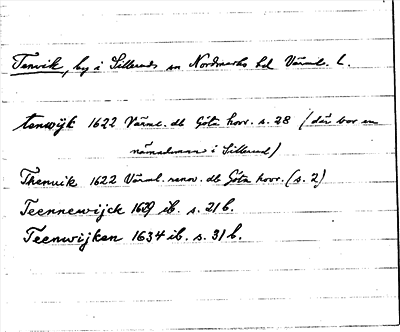 Tenvik, by i Silleruds sn Nordmarks hd Värml. L.
tenwijk 1622 Värml. db Göta hovr. s. 28 (där bor en
nämndeman i Sillerud)
Thenvik 1622 Värml. renov. db Göta hovr. (s. 2)
Teennewijck 1629 ib. s. 21 b.
Teenwijken 1634 ib. s. 31 b.